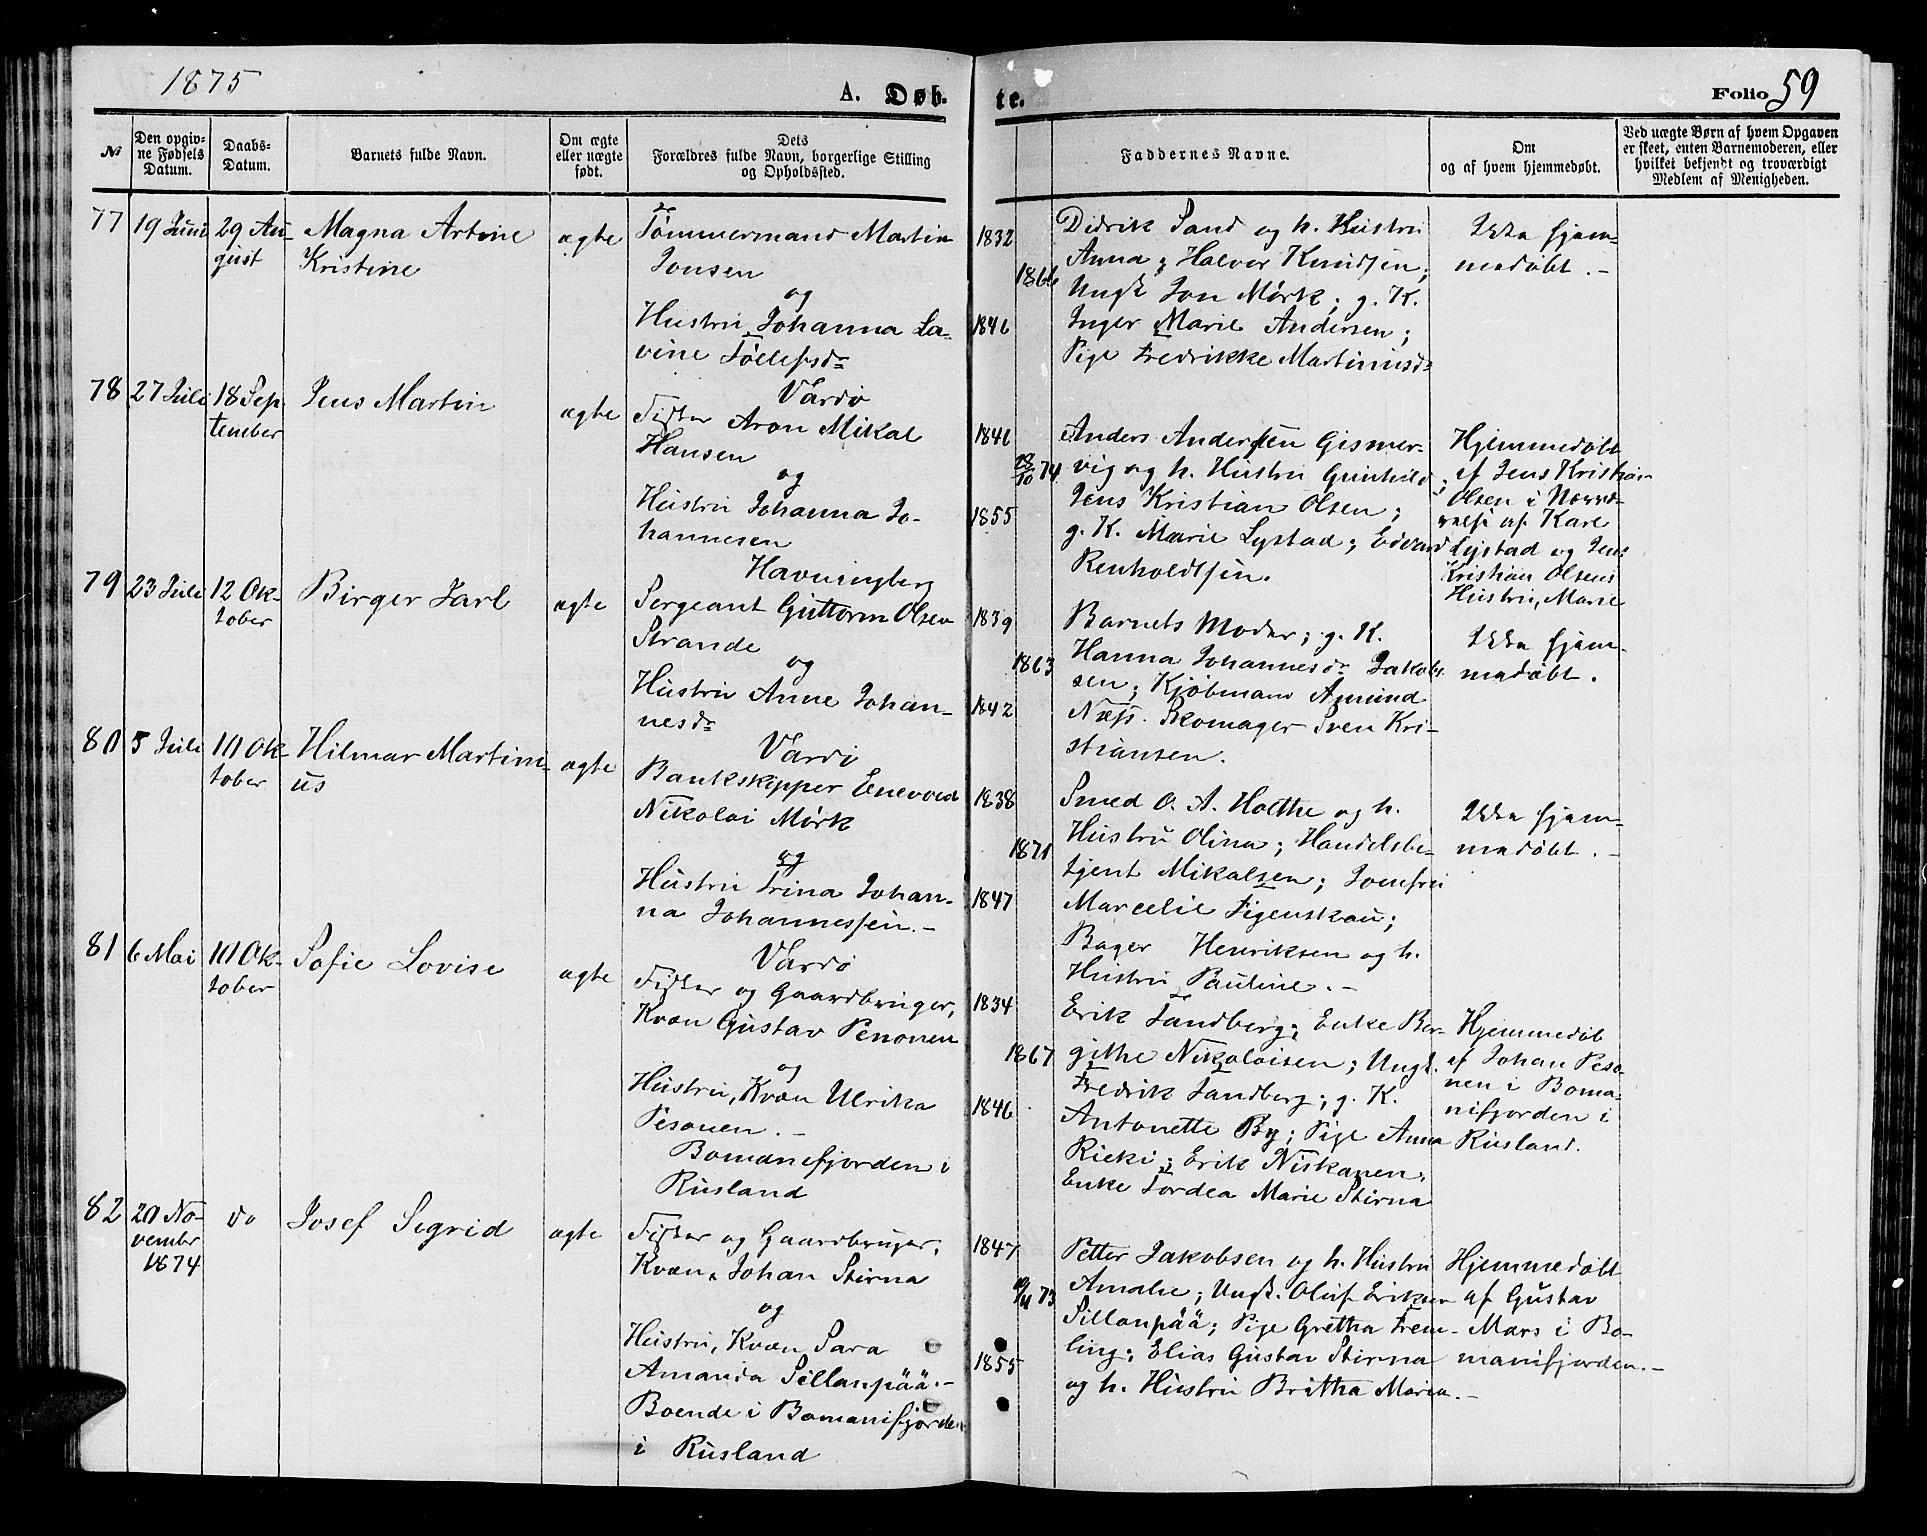 1875
A. Døb-
te.
Folio 59
No
Den opgiv-
ne Fødsels
Datum.
Daabs-
Datum.
Barnets fulde Navn.
Om ægte
eller uægte
født.
Dets
Forældres fulde Navn, borgerlige Stilling
og Opholdssted.
Faddernes Navne.
Om
og af hvem hjemmedøbt.
Ved uægte Børn af hvem Opgaven
er skeet, enten Barnemoderen, eller
hvilket bekjendt og troværdigt
Medlem af Menigheden.
77
19 Juni
29 Au-
gust
Magna Artine
Kristine
ægte
Tømmermand Martin
Jonsen
og
Hustru Johanna La-
vine Tøllefsdr
Vardø
1832
1866
1846
Didrik Sand og h. Hustru
Anna; Halvor Knudsen;
Ungk. Jon Mørk; g. K.
Inger Marie Andersen;
Pige Fredrikke Martinusdr
Ikke hjem-
medøbt. -
78
27 Juli
18 Sep-
tember
Jens Martin
ægte
Fisker Aron Mikal
Hansen
og
Hustru Johanna Jo-
hannesen
Havningberg
1846
28/10 74
1855
Anders Andersen Gismer-
vig og h. Hustru Gunhild;
Jens Kristian Olsen;
g. K. Marie Lystad; Edvard
Renholdtsen.
Hjemmedøbt
af Jens Kristian
Olsen i Nærvæ-
relse af Karl
Lystad og Jens
Kristian Olsens
Hustru, Marie
79
23 Juli
12 Ok-
tober
Birger Jarl
ægte
Sergeant Guttorm Olsen
Strande
og
Hustru Anne Johan-
nesdr
Vardø
1839
1863
1842
Barnets Moder; g. K.
Hanna Johannesdr Jakob-
sen; Kjøbmand Amund
Næss. Skomager Sven Kri-
stiansen.
Ikke hjem-
medøbt.
80
5 Juli
10 Ok-
tober
Hilmar Martini-
us
ægte
Bankskipper Enevold
Nikolai Mørk
og
Hustru Trina Johan-
na Johannessen. -
Vardø
1838
1871
1847
Smed O. A. Holthe og h.
Hustru Olina; Handelsbe-
tjent Mikalsen; Jomfru
Marcelie Figenskau;
Bager Henriksen og h.
Hustru Pauline. -
Ikke hjem-
medøbt. -
81
6 Mai
10 Ok-
tober
Sofie Lovise
ægte
Fisker og Gaardbruger,
Kvæn Gustav Penonen
og
Hustru, Kvæn Ulrika
Pesonen. -
Bomanefjorden i
Rusland
1834
1867
1846
Erik Tandberg; Enke Ber-
githe Nikolaisen; Ungk.
Fredrik Tandberg; g. K.
Antonette By; Pige Anna
Rieki; Erik Niskanen;
Enke Tordea Marie Stirna
Hjemmedøb
af Johan Peso-
nen i Boma-
nifjorden i
Rusland.
82
20 No-
vembr
1874
do
Josef Sigrid
ægte
Fisker og Gaardbruger,
Kvæn, Johan Stirna
og
Hustru, Kvæn Sara
Amanda Sillanpää. -
Boende i Bomanifjorden
i Rusland
1847
73
1855
Petter Jakobsen og h. Hustru
Amalie; Ungk. Oluf Eriksen
Sillanpää; Pige Gretha Frem-
ling; Elias Gustav Stirna
og h. Hustru Britha Maria. -
Hjemmedøbt
af Gustav
Mars i Bo-
manifjorden. -